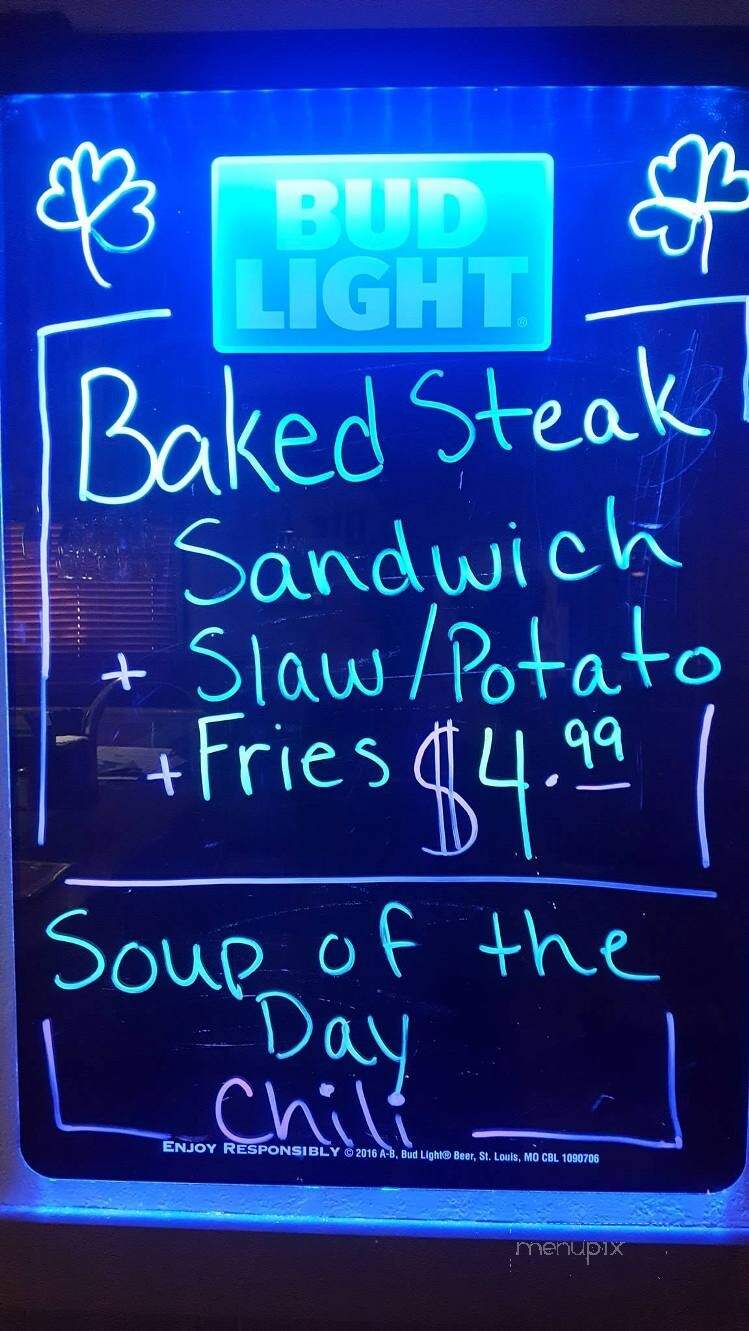 BUD
LIGHT®
Baked Steak
Sandwich
+ Slaw/Potato
+ Fries $4.99
Soup of the
Day
Chili
ENJOY RESPONSIBLY © 2016 A-B, Bud Light® Beer, St. Louis, MO CBL 1090706
menupix